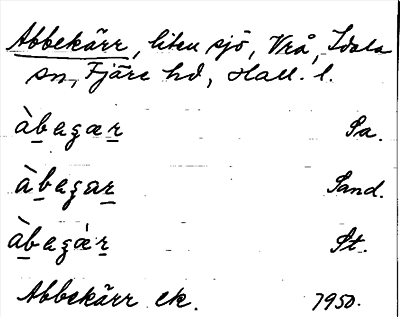 Abbekärr, liten sjö, Vrå, Idala
sn, Fjäre hd, Hall. l.
àbegær Sa.
àbegær Sand.
àbegǽr St.
Abbekärr ek. 1950.